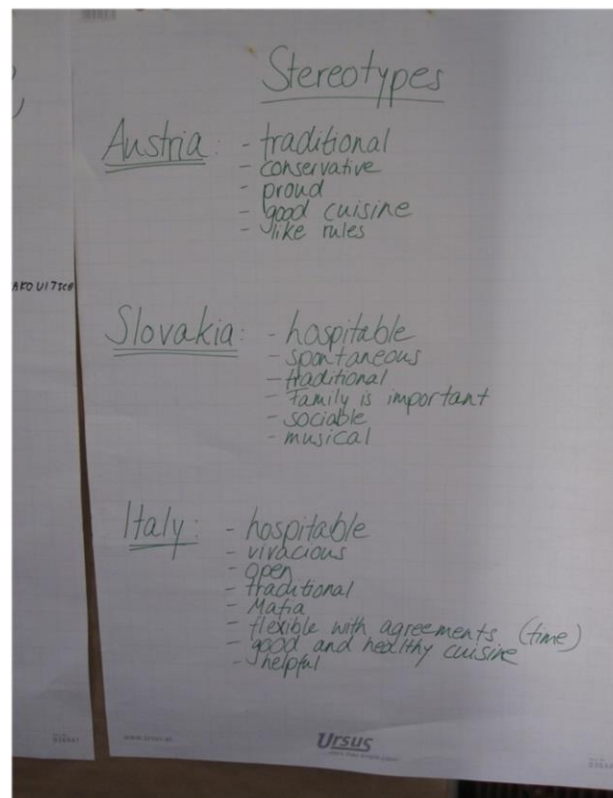 Stereotypes
Austria: - traditional
- conservative
- proud
- good cuisine
- like rules
AKOVITSCH
Slovakia: - hospitable
- spontaneous
- traditional
- Family is important
- sociable
- musical
Italy: - hospitable
- vivacious
- open
- traditional
- Mafia
- flexible with agreements (time)
- good and healthy cuisine
- helpful
www.ursus.at
Ursus